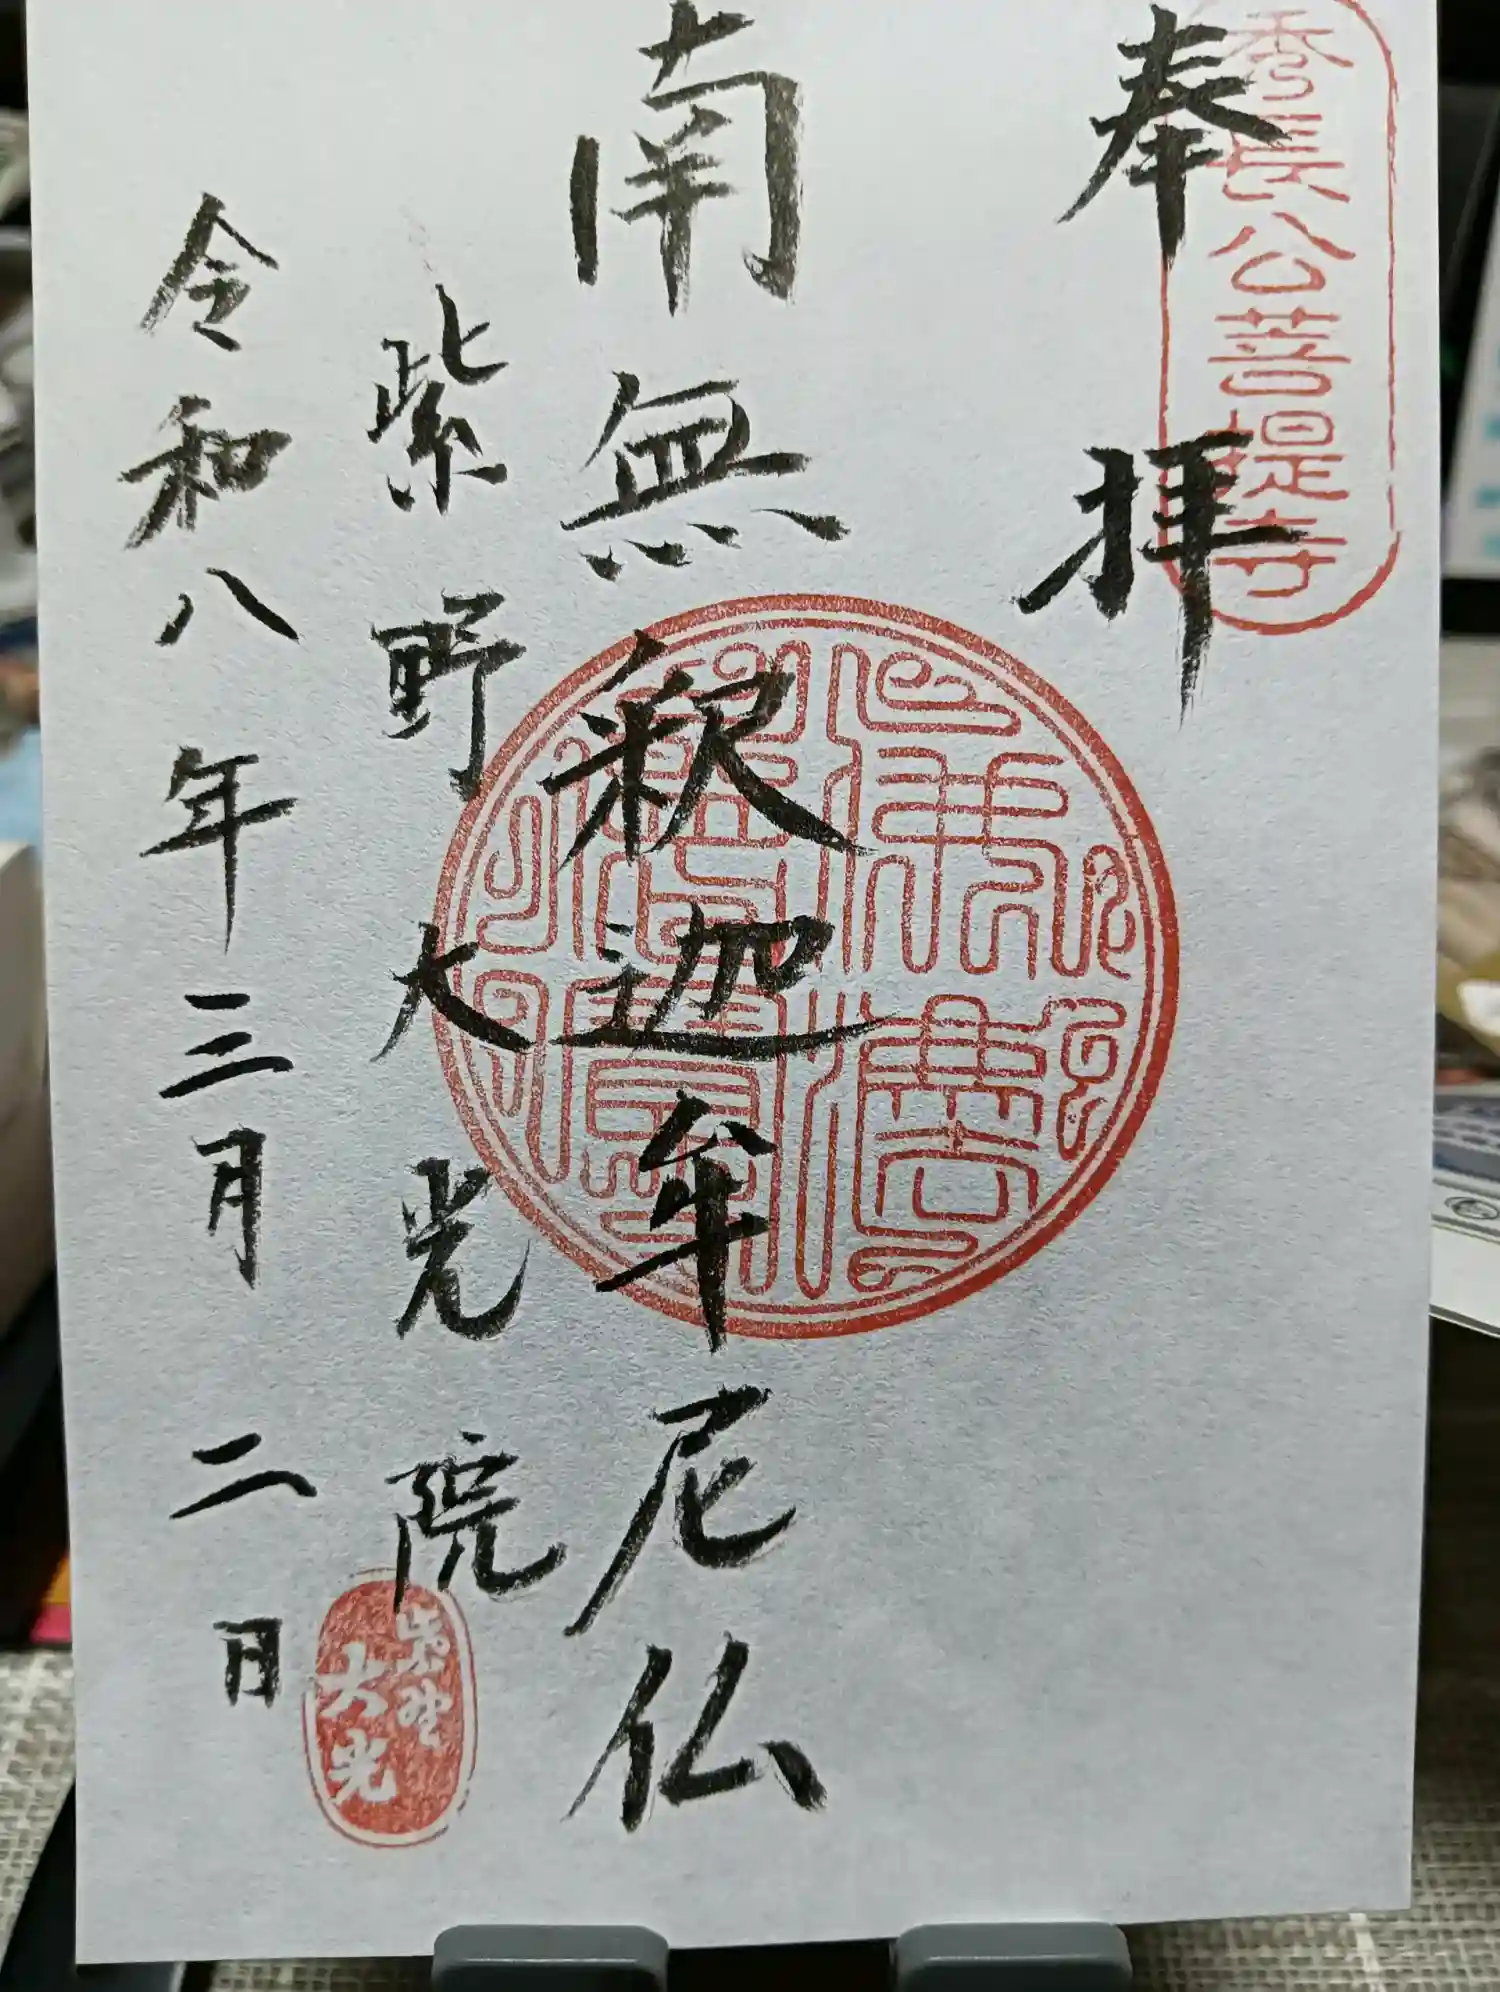 奉拝
秀長公菩提寺
南無釈迦牟尼仏
紫野 大光院
令和八年三月二日
紫野
大光